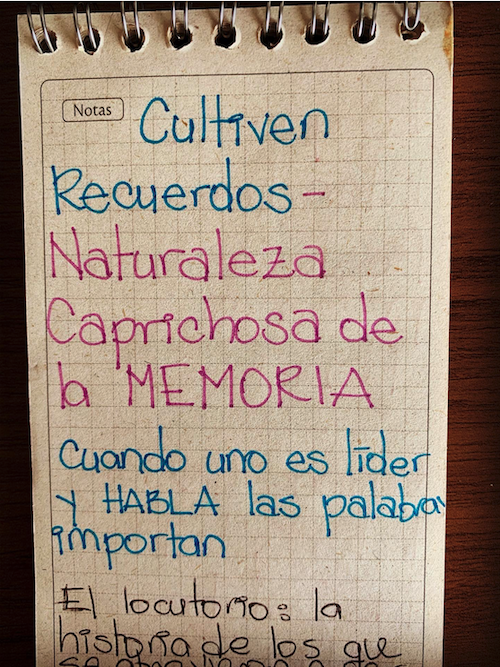 Notas
Cultiven
Recuerdos -
Naturaleza
Caprichosa de
la MEMORIA
Cuando uno es líder
y HABLA las palabras
importan
El locutorio: la
historia de los que
se